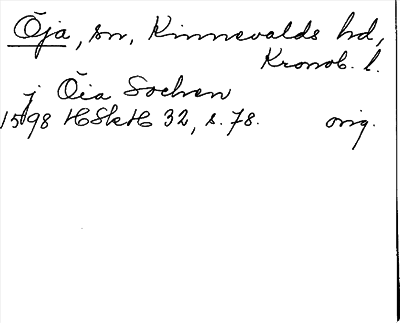 Öja, sn, Kinnevalds hd,
Kronob. l.
j Öia Sochen
1598 HSkH 32, s. 78. orig.